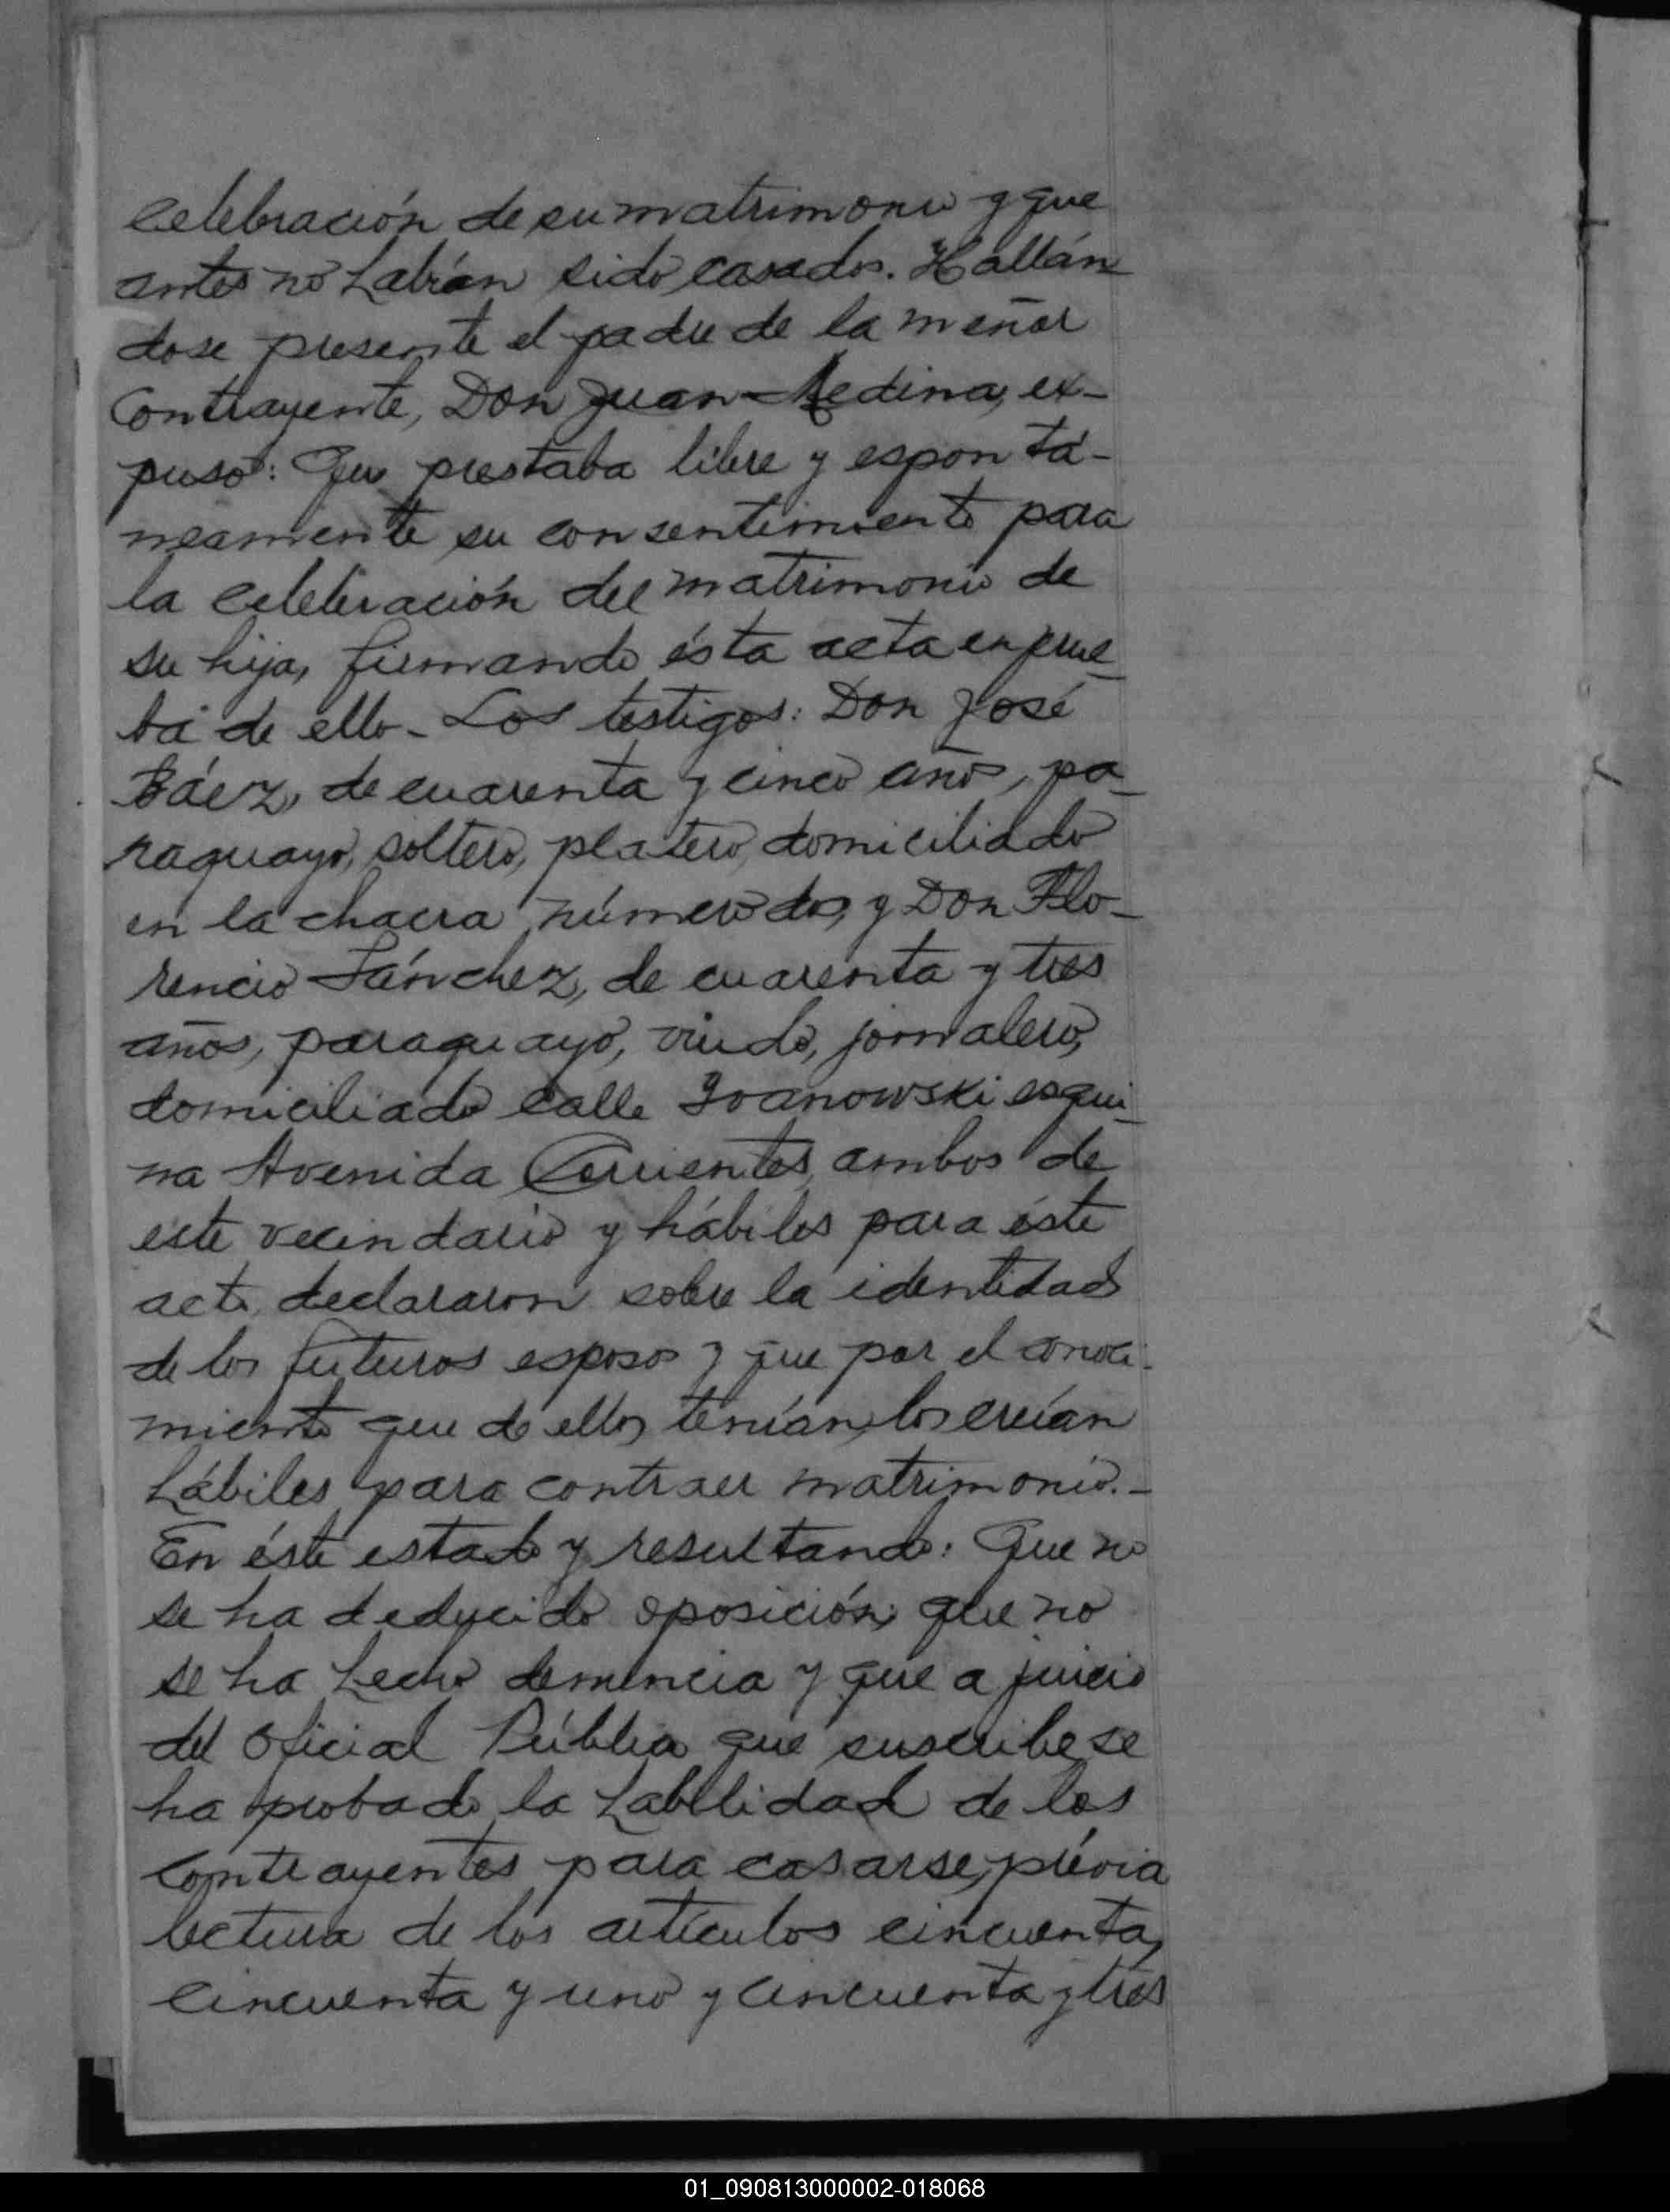 celebración de su matrimonio y que
antes no habían sido casados. Hallán
dose presente el padre de la menor
contrayente, Don Juan Medina, ex-
puso: Que prestaba libre y espontá-
neamente su consentimiento para
la celebración del matrimonio de
su hija, firmando ésta acta en prue_
ba de ello_ Los testigos: Don José
Báez, de cuarenta y cinco años, pa_
raguayo, soltero, platero, domiciliado
en la chacra número dos, y Don Flo_
rencio Sánchez, de cuarenta y tres
años, paraguayo, viudo, jornalero,
domiciliado calle Ivanowski esqui_
na Avenida Corrientes, ambos de
este vecindario y hábiles para éste
acto, declararon sobre la identidad
de los futuros esposos y que por el conoci-
miento que de ellos tenían, los creían
hábiles para contraer matrimonio._
En éste estado y resultando: Que no
se ha deducido oposición; que no
se ha hecho denuncia y que a juicio
del Oficial Público que suscribe se
ha probado la habilidad de los
contrayentes para casarse, prévia
lectura de los artículos cincuenta,
cincuenta y uno y cincuenta y tres
01_090813000002-018068